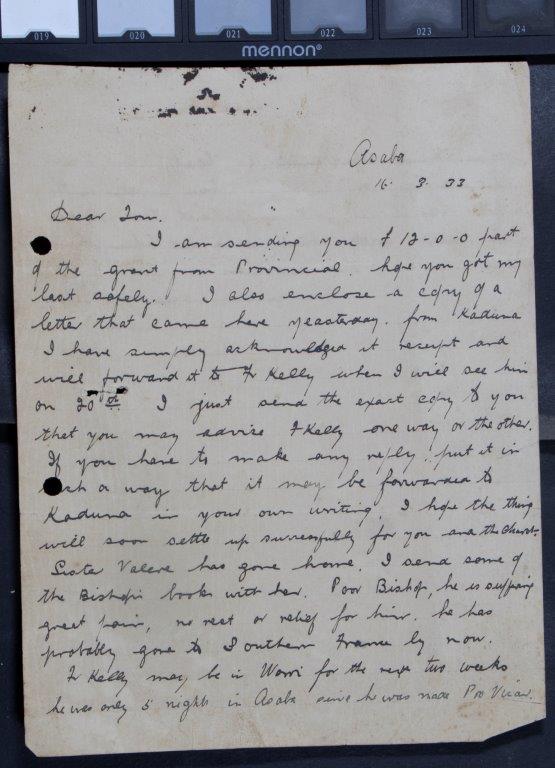 019 020 021 022 023 024
mennon®
Asaba
16. 3. 33
Dear Tom.
I am sending you £ 12-0-0 part
of the grant from Provincial. hope you got my
last safely. I also enclose a copy of a
letter that came here yeasterday. from Kaduna
I have simply acknowledged it receipt and
will forward it to Fr Kelly when I will see him
on 20th. I just send the exact copy to you
that you may advise F Kelly one way or the other.
If you have to make any reply. put it in
such a way that it may be forwarded to
Kaduna in your own writing. I hope the thing
will soon settle up successfully for you and the church.
Sister Valere has gone home. I send some of
the Bishop's books with her. Poor Bishop, he is suffering
great pain, no rest or relief for him. he has
probably gone to Southern France by now.
Fr Kelly may be in Warri for the next two weeks
he was only 5 nights in Asaba since he was made Pro Vicar.